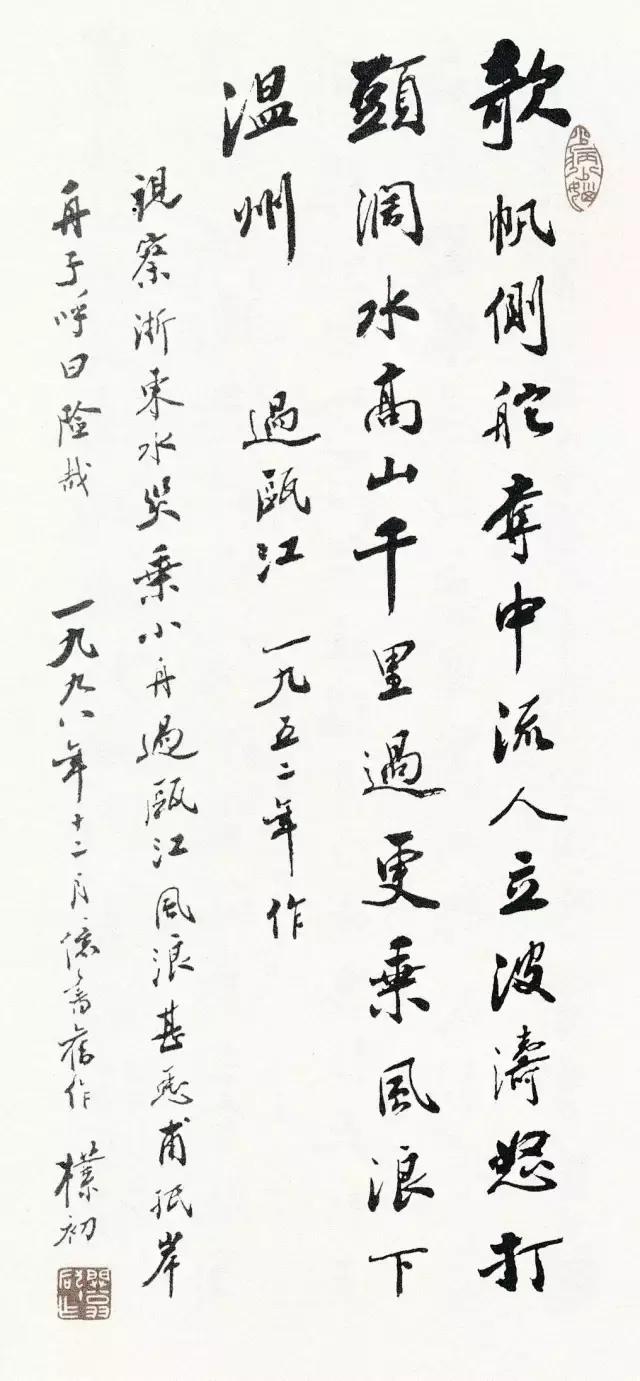 欹帆側舵奪中流人立波濤怒打
頭濶水高山千里過更乘風浪下
温州 過甌江 一九五二年作
視察浙東水災乘小舟過甌江風浪甚惡甫抵岸
舟子呼曰险哉 一九九八年十二月憶書舊作 樸初